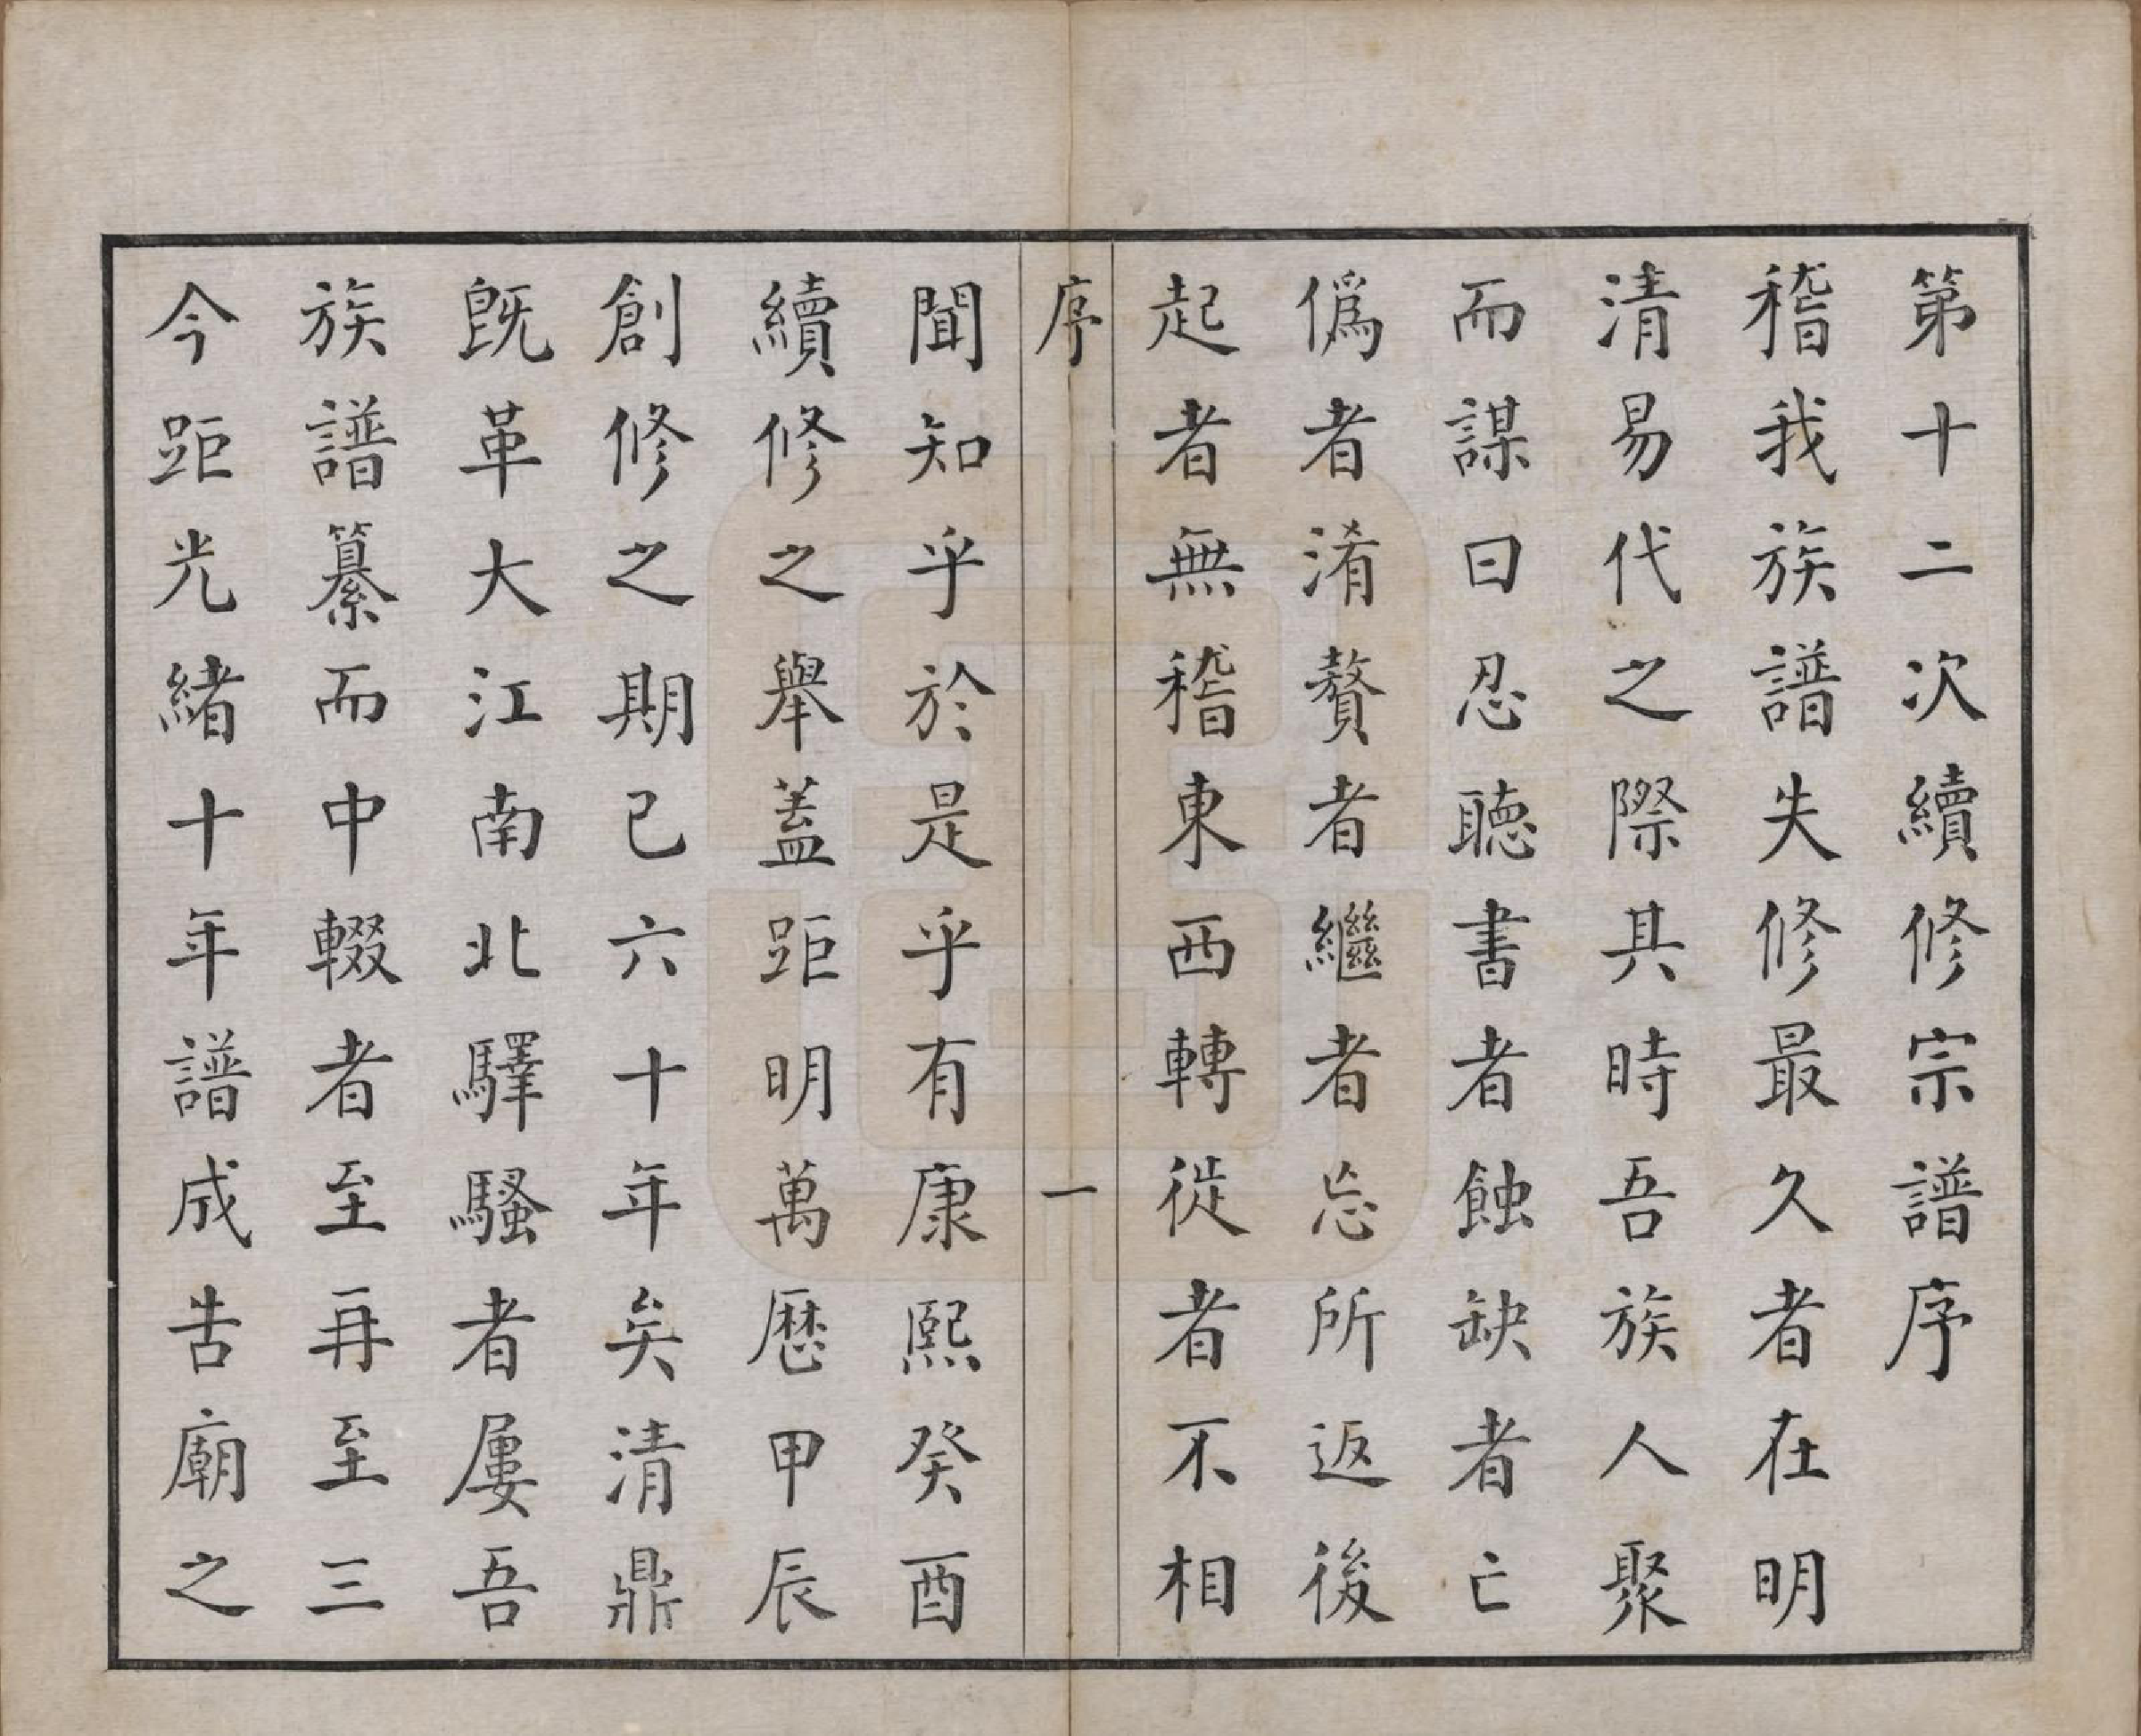 第十二次續修宗譜序
稽我族譜失修最久者在明
清易代之際其時吾族人聚
而謀曰忍聽書者蝕缺者亡
偽者淆贅者繼者忘所返後
起者無稽東西轉徙者不相
序 一
聞知乎於是乎有康熙癸酉
續修之舉蓋距明萬歷甲辰
創修之期已六十年矣清鼎
旣革大江南北驛騷者屢吾
族譜纂而中輟者至再至三
今距光緒十年譜成告廟之